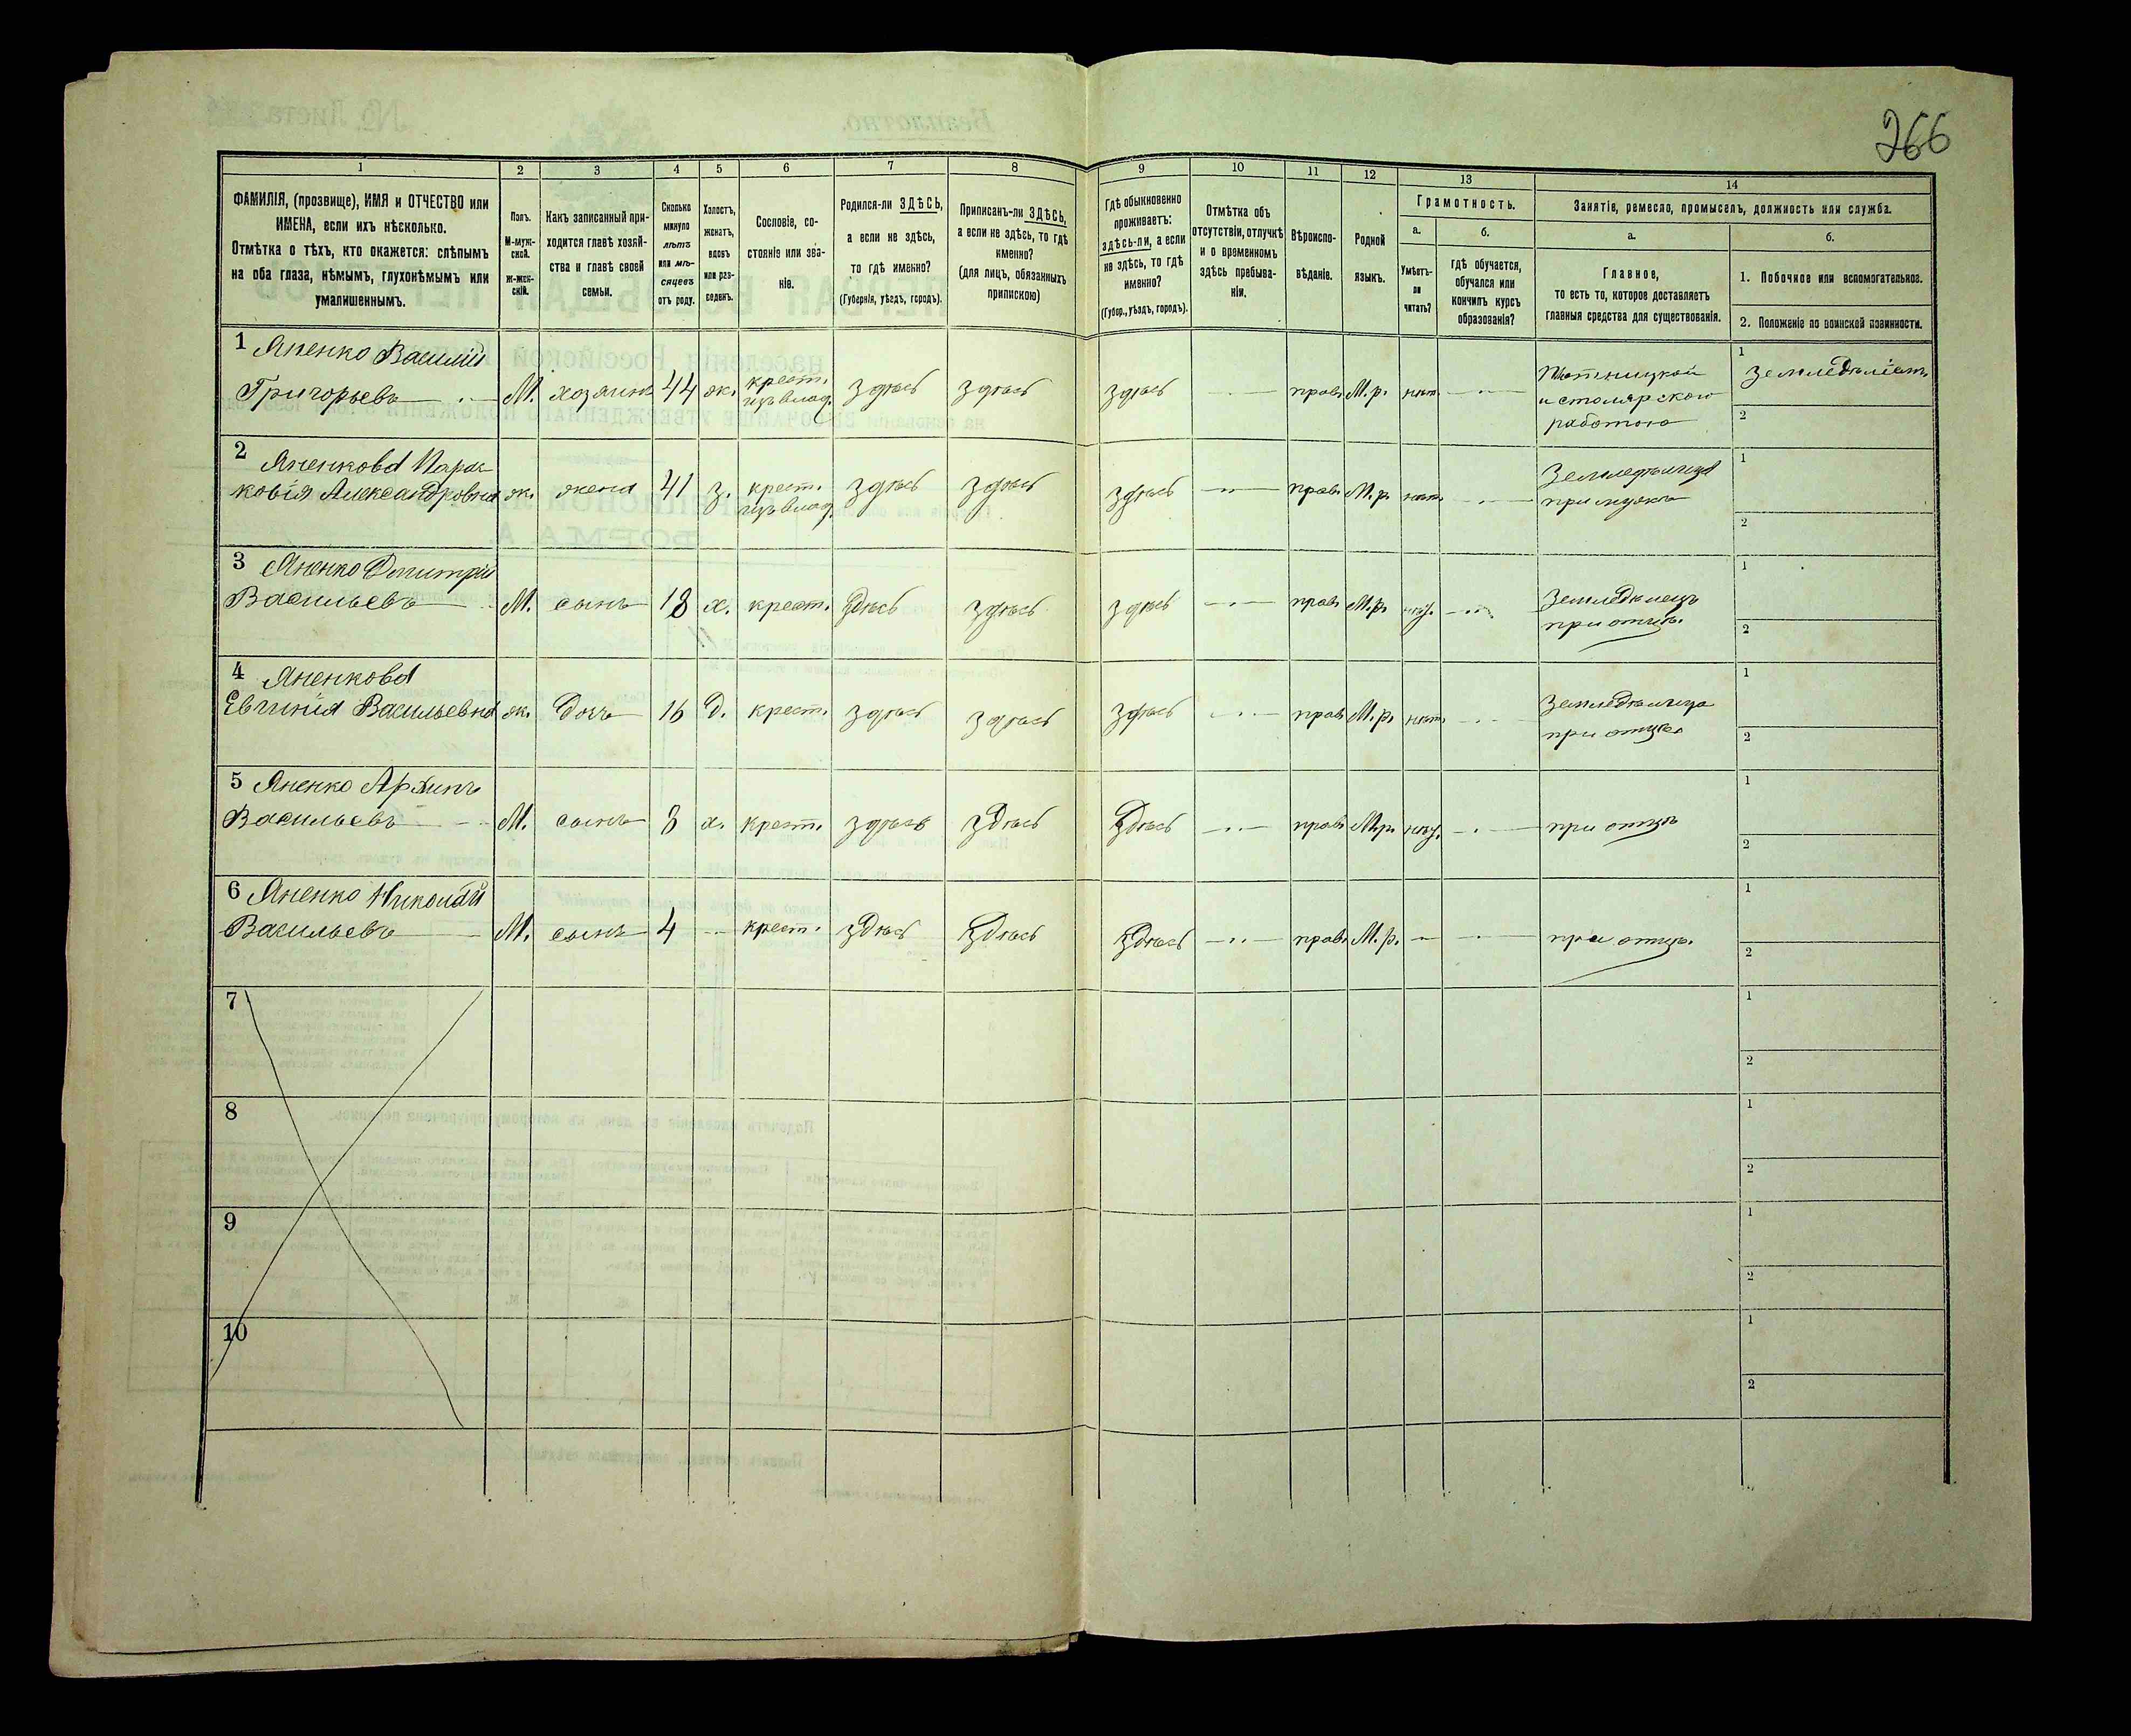 266
1 2 3 4 5 6 7 8 9 10 11 12 13 14
ФАМИЛІЯ, (прозвище), ИМЯ и ОТЧЕСТВО или
ИМЕНА, если ихъ нѣсколько.
Отмѣтка о тѣхъ, кто окажется: слѣпымъ
на оба глаза, нѣмымъ, глухонѣмымъ или
умалишеннымъ.
Полъ.
М-муж-
ской.
ж-жен-
скій.
Какъ записанный при-
ходится главѣ хозяй-
ства и главѣ своей
семьи.
Сколько
минуло
лѣтъ
или мѣ-
сяцевъ
отъ роду.
Холостъ,
женатъ,
вдовъ
или раз-
веденъ.
Сословіе, со-
стояніе или зва-
ніе.
Родился-ли ЗДѢСЬ,
а если не здѣсь,
то гдѣ именно?
(Губернія, уѣздъ, городъ).
Приписанъ-ли ЗДѢСЬ,
а если не здѣсь, то гдѣ
именно?
(для лицъ, обязанныхъ
припискою)
Гдѣ обыкновенно
проживаетъ:
здѣсь-ли, а если
не здѣсь, то гдѣ
именно?
(Губер., уѣздъ, городъ).
Отмѣтка объ
отсутствіи, отлучкѣ
и о временномъ
здѣсь пребыва-
ніи.
Вѣроиспо-
вѣданіе.
Родной
языкъ.
Грамотность.
а.
Умѣетъ-
ли
читать?
б.
гдѣ обучается,
обучался или
кончилъ курсъ
образованія?
Занятіе, ремесло, промыселъ, должность или служба.
а.
Главное,
то есть то, которое доставляетъ
главныя средства для существованія.
б.
1. Побочное или вспомогательное.
2. Положеніе по воинской повинности.
1 Яненко Василій
Григорьевъ М. хозяинъ 44 ж. крест. изъ влад. здѣсь здѣсь здѣсь прав. М.р. нѣт.
Плотницкой
и столярскою
работою
1 Земледѣліемъ
2
2 Яненкова Парас-
ковія Александровна ж. жена 41 з. крест. изъ влад. здѣсь здѣсь здѣсь прав. М.р. нѣт.
Земледѣлица
при мужѣ
1
2
3 Яненко Дмитрій
Васильевъ М. сынъ 18 х. крест. здѣсь здѣсь здѣсь прав. М.р.
Земледѣлецъ
при отцѣ.
1
2
4 Яненкова
Евгинія Васильевна ж. дочь 16 д. крест. здѣсь здѣсь здѣсь прав. М.р. нѣт.
Земледѣлица
при отцѣ
1
2
5 Яненко Архипъ
Васильевъ М. сынъ 8 х. крест. здѣсь здѣсь здѣсь прав. М.р. при отцѣ
1
2
6 Яненко Николай
Васильевъ М. сынъ 4 крест. здѣсь здѣсь здѣсь прав. М.р. при отцѣ.
1
2
7
1
2
8
1
2
9
1
2
10
1
2